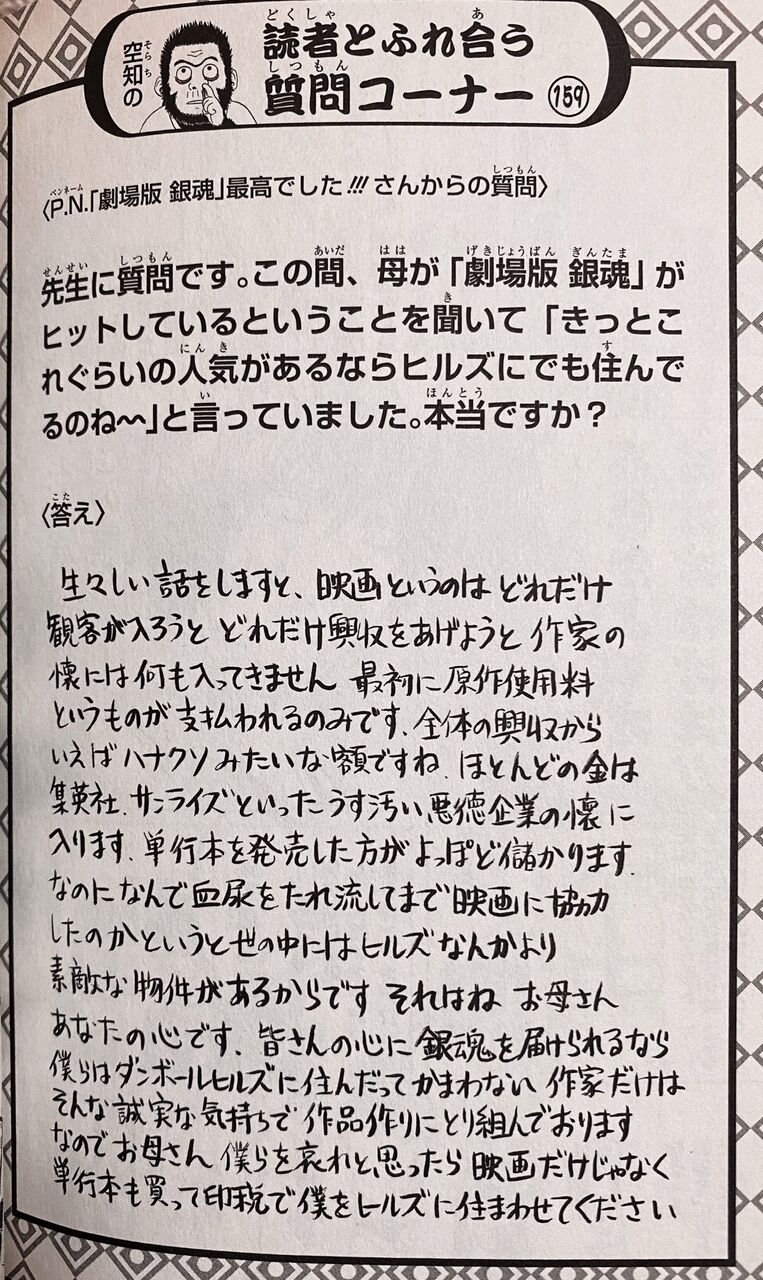 空知の
読者とふれ合う
質問コーナー 159
〈P.N.「劇場版 銀魂」最高でした!!! さんからの質問〉
先生に質問です。この間、母が「劇場版 銀魂」が
ヒットしているということを聞いて「きっとこ
れぐらいの人気があるならヒルズにでも住んで
るのね〜〜」と言っていました。本当ですか？
〈答え〉
生々しい話をしますと、映画というのは どれだけ
観客が入ろうと どれだけ興収をあげようと 作家の
懐には何も入ってきません 最初に原作使用料
というものが支払われるのみです、全体の興収から
いえばハナクソみたいな額ですね、ほとんどの金は
集英社、サンライズといったうす汚い悪徳企業の懐に
入ります、単行本を発売した方がよっぽど儲かります、
なのになんで血尿をたれ流してまで映画に協力
したのかというと世の中にはヒルズなんかより
素敵な物件があるからです それはね お母さん
あなたの心です、皆さんの心に銀魂を届けられるなら
僕らはダンボールヒルズに住んだってかまわない 作家だけは
そんな誠実な気持ちで作品作りにとり組んでおります
なのでお母さん 僕らを哀れと思ったら映画だけじゃなく
単行本も買って印税で僕をヒルズに住まわせてください